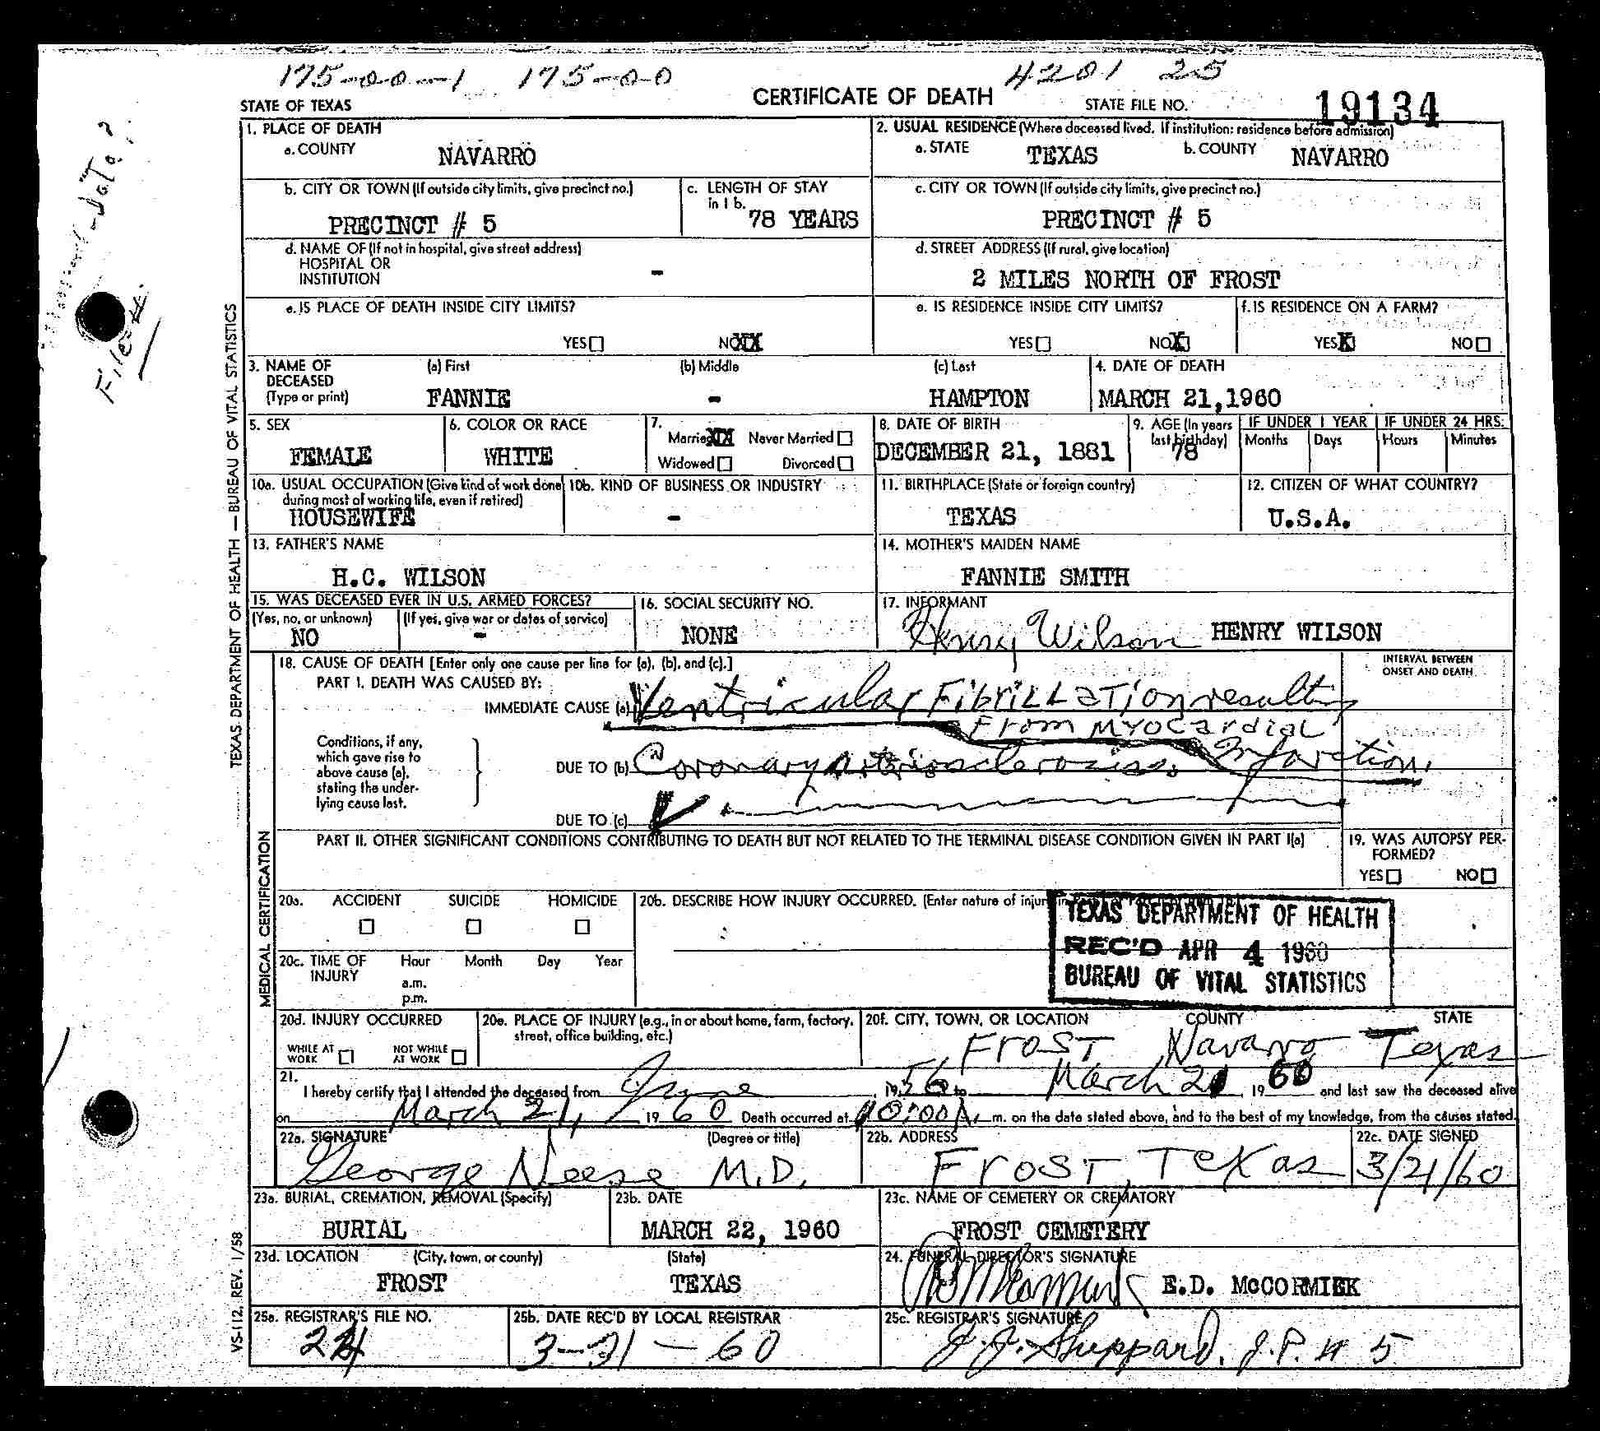 175-00-1 175-00 4201 25
STATE OF TEXAS CERTIFICATE OF DEATH STATE FILE NO. 19134
File #
TEXAS DEPARTMENT OF HEALTH — BUREAU OF VITAL STATISTICS
VS-112, REV. 1/58
1. PLACE OF DEATH 2. USUAL RESIDENCE (Where deceased lived. If institution: residence before admission)
a. COUNTY NAVARRO a. STATE TEXAS b. COUNTY NAVARRO
b. CITY OR TOWN (If outside city limits, give precinct no.) c. LENGTH OF STAY in 1 b. c. CITY OR TOWN (If outside city limits, give precinct no.)
PRECINCT # 5 78 YEARS PRECINCT # 5
d. NAME OF (If not in hospital, give street address) HOSPITAL OR INSTITUTION - d. STREET ADDRESS (If rural, give location)
2 MILES NORTH OF FROST
e. IS PLACE OF DEATH INSIDE CITY LIMITS? e. IS RESIDENCE INSIDE CITY LIMITS? f. IS RESIDENCE ON A FARM?
YES NO XX YES NO X YES X NO
3. NAME OF DECEASED (Type or print) (a) First (b) Middle (c) Last 4. DATE OF DEATH
FANNIE - HAMPTON MARCH 21, 1960
5. SEX 6. COLOR OR RACE 7. Married XX Never Married 8. DATE OF BIRTH 9. AGE (In years last birthday) IF UNDER 1 YEAR IF UNDER 24 HRS.
Months Days Hours Minutes
FEMALE WHITE Widowed Divorced DECEMBER 21, 1881 78
10a. USUAL OCCUPATION (Give kind of work done during most of working life, even if retired) 10b. KIND OF BUSINESS OR INDUSTRY 11. BIRTHPLACE (State or foreign country) 12. CITIZEN OF WHAT COUNTRY?
HOUSEWIFE - TEXAS U.S.A.
13. FATHER'S NAME 14. MOTHER'S MAIDEN NAME
H.C. WILSON FANNIE SMITH
15. WAS DECEASED EVER IN U.S. ARMED FORCES? 16. SOCIAL SECURITY NO. 17. INFORMANT
(Yes, no, or unknown) (If yes, give war or dates of service)
NO - NONE Henry Wilson HENRY WILSON
MEDICAL CERTIFICATION
18. CAUSE OF DEATH [Enter only one cause per line for (a), (b), and (c).] INTERVAL BETWEEN ONSET AND DEATH
PART I. DEATH WAS CAUSED BY:
IMMEDIATE CAUSE (a) Ventricular Fibrillation resulting
From Myocardial
Infarction.
Conditions, if any, which gave rise to above cause (a), stating the underlying cause last.
DUE TO (b) Coronary Arteriosclerosis.
DUE TO (c)
PART II. OTHER SIGNIFICANT CONDITIONS CONTRIBUTING TO DEATH BUT NOT RELATED TO THE TERMINAL DISEASE CONDITION GIVEN IN PART I(a) 19. WAS AUTOPSY PERFORMED?
YES NO
20a. ACCIDENT SUICIDE HOMICIDE 20b. DESCRIBE HOW INJURY OCCURRED. (Enter nature of injury in
TEXAS DEPARTMENT OF HEALTH
REC'D APR 4 1960
BUREAU OF VITAL STATISTICS
20c. TIME OF INJURY Hour Month Day Year
a.m.
p.m.
20d. INJURY OCCURRED 20e. PLACE OF INJURY (e.g., in or about home, farm, factory, street, office building, etc.) 20f. CITY, TOWN, OR LOCATION COUNTY STATE
WHILE AT WORK NOT WHILE AT WORK Frost Navarro Texas
21. I hereby certify that I attended the deceased from June 1956 to March 21 1960 and last saw the deceased alive
on March 21, 1960 Death occurred at 10:00A. m. on the date stated above, and to the best of my knowledge, from the causes stated.
22a. SIGNATURE (Degree or title) 22b. ADDRESS 22c. DATE SIGNED
George Neese M.D. Frost, Texas 3/21/60
23a. BURIAL, CREMATION, REMOVAL (Specify) 23b. DATE 23c. NAME OF CEMETERY OR CREMATORY
BURIAL MARCH 22, 1960 FROST CEMETERY
23d. LOCATION (City, town, or county) (State) 24. FUNERAL DIRECTOR'S SIGNATURE
FROST TEXAS E.D. McCORMICK
25a. REGISTRAR'S FILE NO. 25b. DATE REC'D BY LOCAL REGISTRAR 25c. REGISTRAR'S SIGNATURE
3-31-60 J.J. Sheppard. J.P. # 5